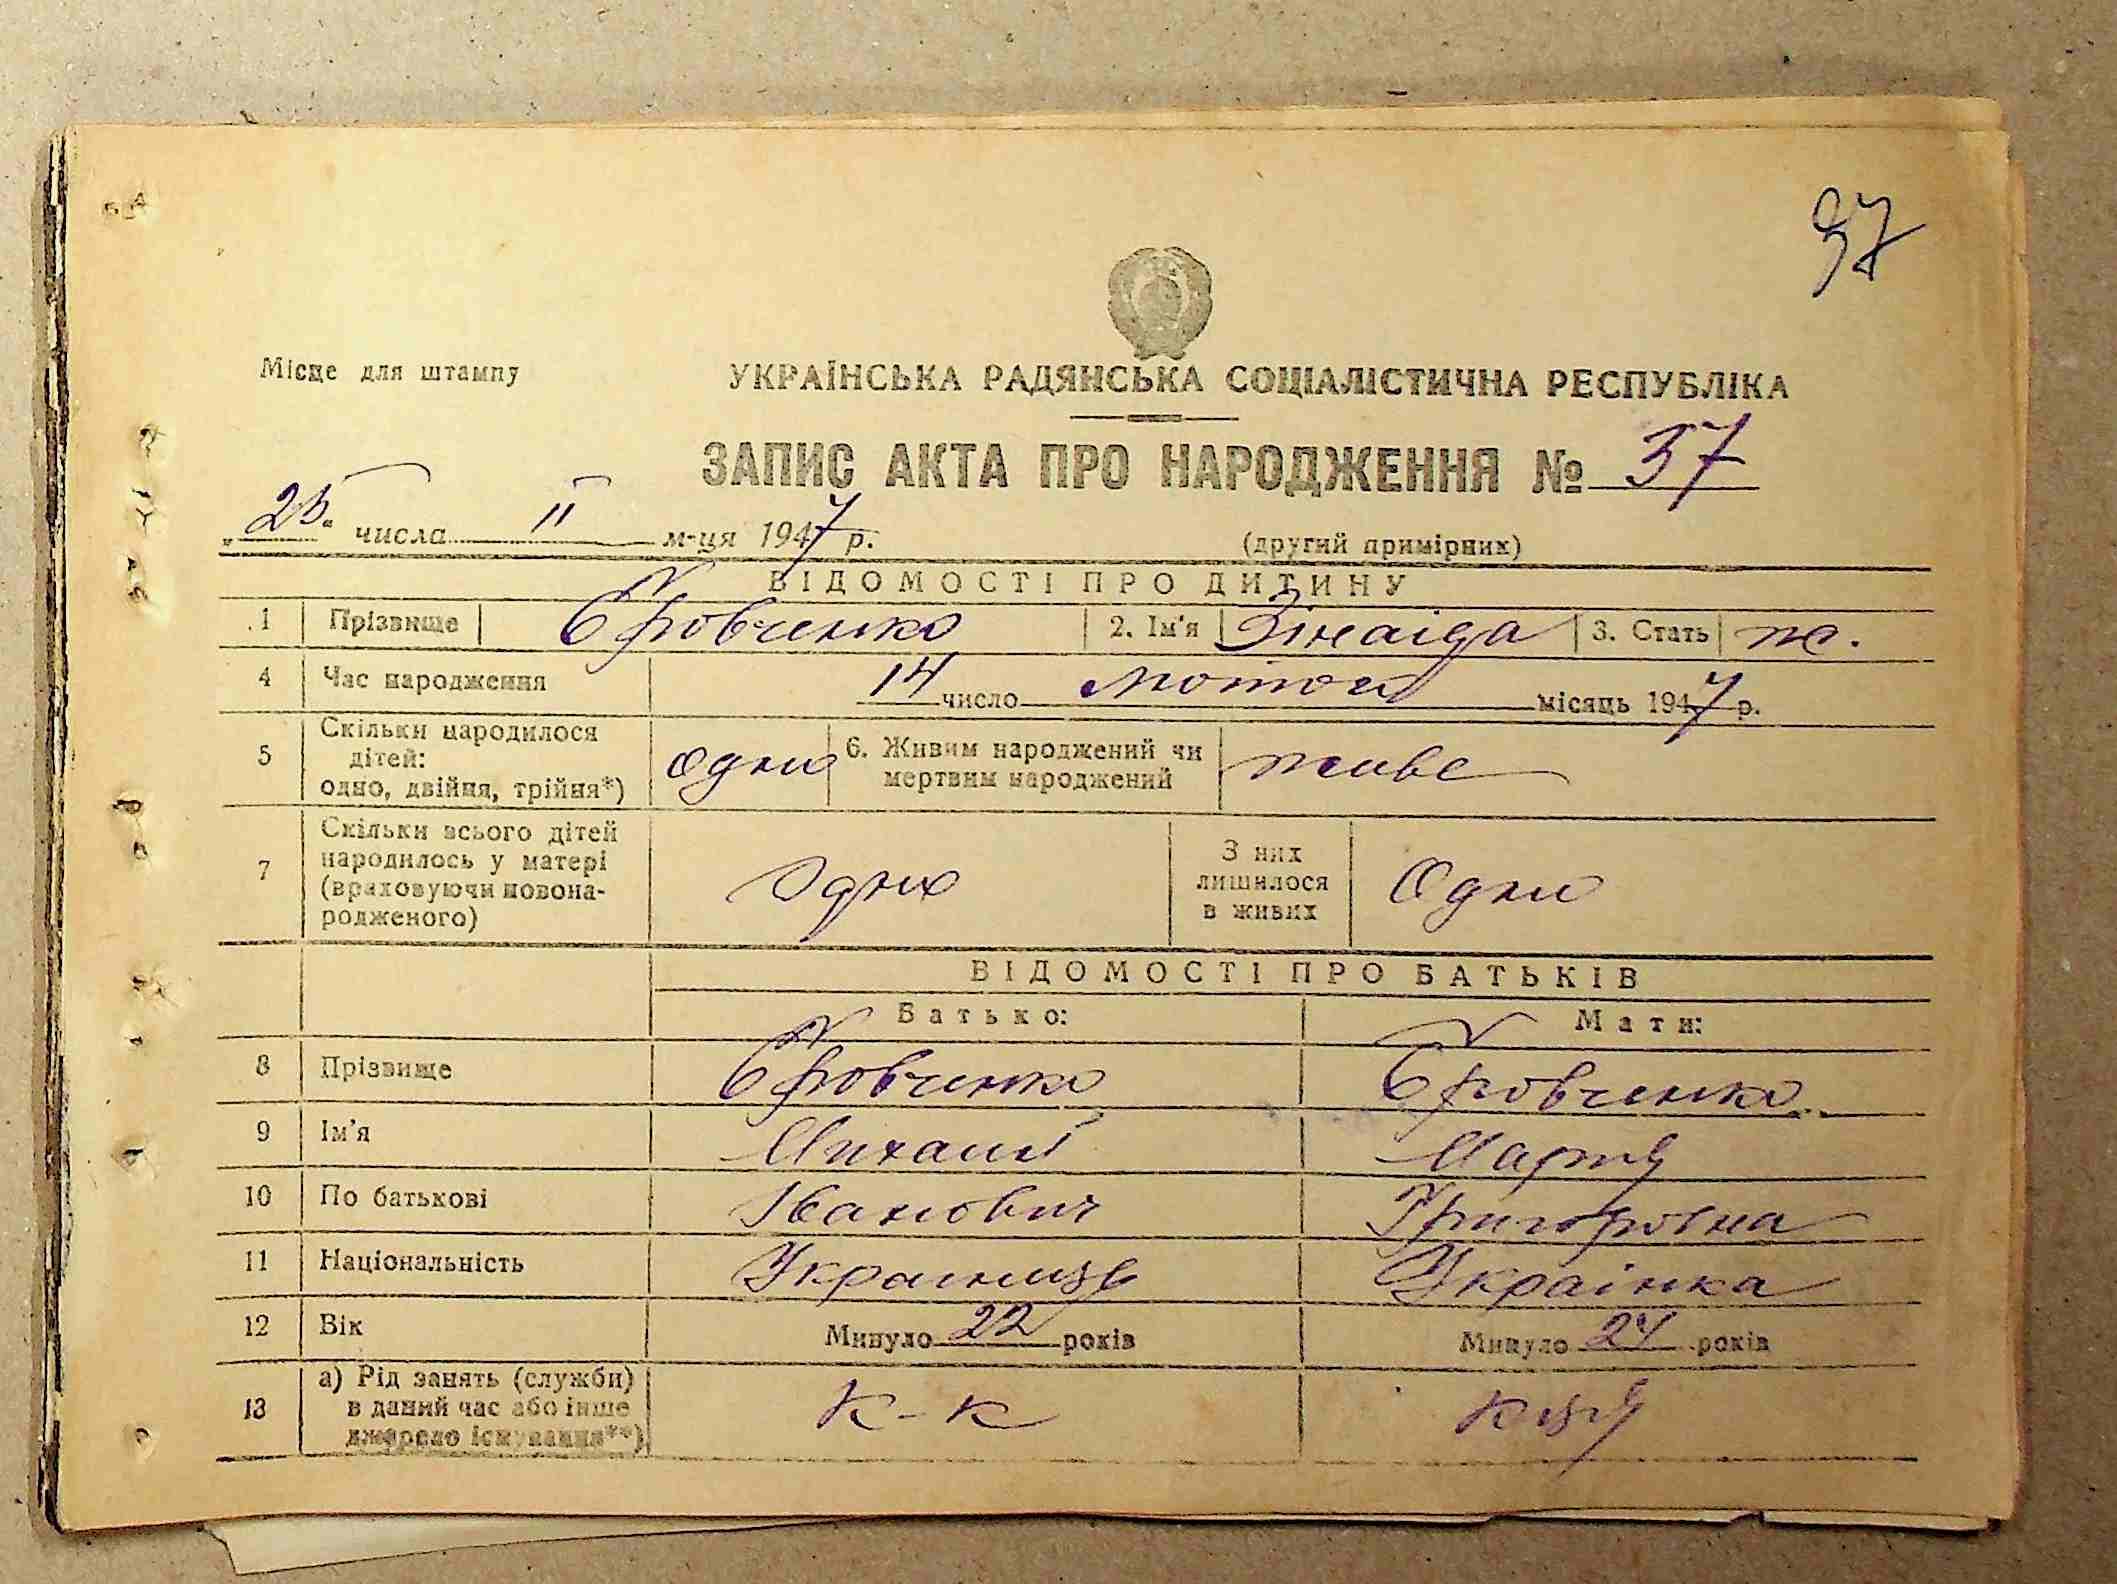 37
Місце для штампу
УКРАЇНСЬКА РАДЯНСЬКА СОЦІАЛІСТИЧНА РЕСПУБЛІКА
ЗАПИС АКТА ПРО НАРОДЖЕННЯ № 37
„25“ числа II м-ця 1947 р. (другий примірник)
ВІДОМОСТІ ПРО ДИТИНУ
1 Прізвище 2. Ім'я Зінаіда 3. Стать ж.
4 Час народження 14 число лютого місяць 1947 р.
5 Скільки народилося дітей: одно, двійня, трійня*) одно 6. Живим народжений чи мертвим народжений живе
7 Скільки всього дітей народилось у матері (враховуючи новонародженого) Одно З них лишилося в живих Одно
ВІДОМОСТІ ПРО БАТЬКІВ
Батько: Мати:
8 Прізвище
9 Ім'я Михаил Мария
10 По батькові Іванович Григоровна
11 Національність Украинець Украінка
12 Вік Минуло 22 років Минуло 24 років
13 а) Рід занять (служби) в даний час або інше джерело існування**) к-к